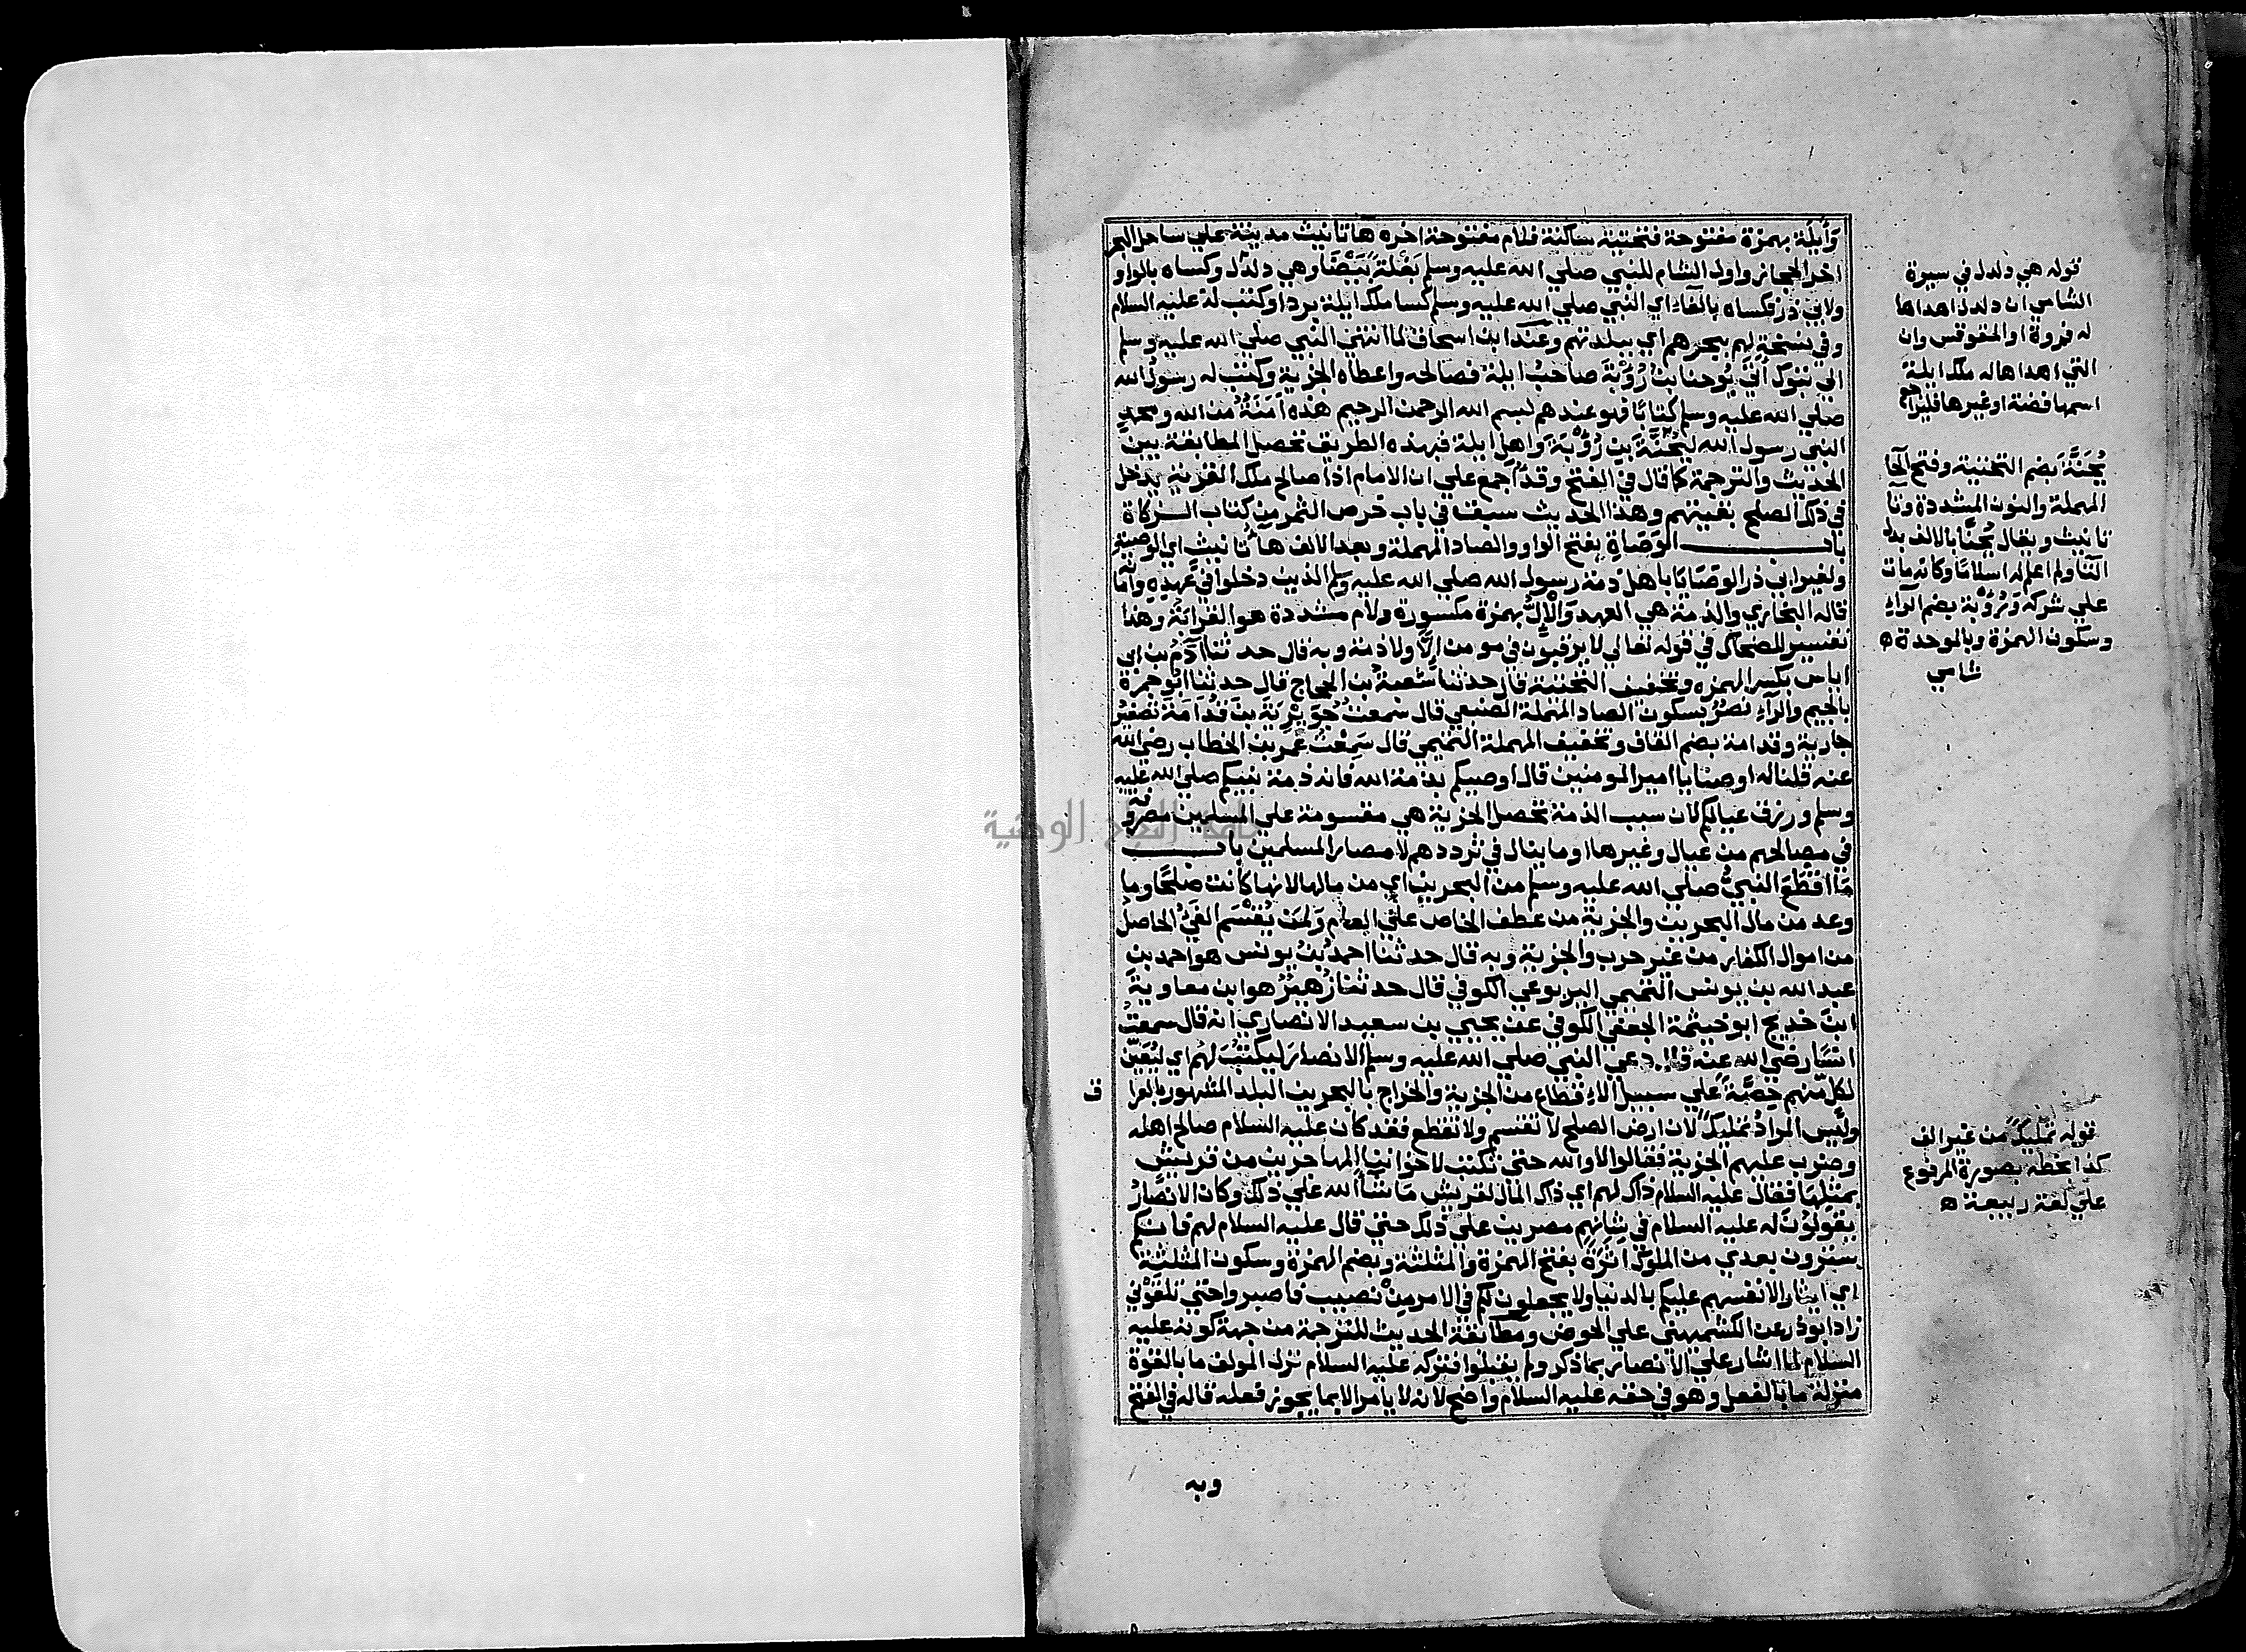 وَأَيْلَة بهمزة مفتوحة فتحتية ساكنة فلام مفتوحة اخره ها تانيث مدينة علي ساحل البحر
اخر الحجاز واول الشام للنبي صلي الله عليه وسلم بَغْلَةً بَيْضَا وهي دلدل وكساه بالواو
ولابي ذر فكساه بالفاء اي النبي صلي الله عليه وسلم كسا ملك ايلة بردا وكتب له عليه السلام
وفي نسخة لهم ببحرهم اي ببلدتهم وعند ابن اسحاق لما انتهي النبي صلي الله عليه وسلم
الي تبوك اتي يُوحنا بن رُؤْبَةَ صاحبُ ايلة فصالحه واعطاه الجزية وكتب له رسولُ الله
صلي الله عليه وسلم كتابًا فهو عندهم بسم الله الرحمن الرحيم هذه اَمَنَةٌ من الله ومحمدٍ
النبي رسول الله ليُحَنَّةَ بن رُؤْبَةَ واهل ايلة فبهذه الطريق تحصل المطابقة بين
الحديث والترجمة كما قال في الفتح وقد اُجمع علي ان الامام اذا صالح ملك القرية يدخل
في ذلك الصلح بقيتهم وهذا الحديث سبق في باب خرص التمر من كتاب الزكاة
باب الوَصَاةِ بفتح الواو والصاد المهملة وبعد الالف ها تانيث اي الوصية
ولغير ابي ذر الوصَايَا باهل ذمة رسول الله صلي الله عليه وسلم الذين دخلوا في عَهْدِهِ وامَانه
قاله البخاري والذمة هي العهد وَالْإِلُّ بهمزة مكسورة ولام مشددة هو القرابَةُ وهذا
تفسير الضحاك في قوله تعالي لا يرقبون في مومن الَّا ولا ذمة وبه قال حدثنا آدَمُ بن ابي
اياس بكسر الهمزه وتخفيف التحتية قال حدثنا شُعبة بن الحجاج قال حدثنا ابُو جمرة
بالجيم والرآء نَصْرُ بسكون الصاد المهملة الضبعي قال سَمعت جُوَيْرِيَةَ بن قُدَامَةَ تصغير
جارية وقدامة بضم القاف وتخفيف المهملة التميمي قال سَمِعْتُ عُمر بن الخطاب رضي الله
عنه قلنا له اوصنا يا امير المومنين قال اوصيكم بذمة الله فانه ذمة نبيكم صلي الله عليه
وسلم ورزق عيالكم لان سبب الذمة تحصل الجزية هي مقسومة علي المسلمين مصروفة
في مصالحهم من عيال وغيرها او ما ينال في ترددهم لامصار المسلمين باب
مَا اقطَعَ النبيُّ صلي الله عليه وسلم من البحرين اي من مالها لانها كانت صلحًا وما
وعد من مال البحرين والجزية من عطف الخاص علي العام وَلمَن يُقْسَم الفَيْ الحاصل
من اموال الكفار من غير حرب والجزية وبه قال حدثنا احمدُ بن يونس هو احمد بن
عبد الله بن يونس التميمي اليربوعي الكوفي قال حدثنا زُهيرٌ هو ابن معاوية
ابن خديج ابو خيثمة الجعفي الكوفي عن يحيي بن سعيد الانصاري انه قال سمعتُ
انسًا رضي الله عنه قال دعي النبي صلي الله عليه وسلم الانصارَ ليكتُبَ لهُم اي ليُعَيِّن
لكل منهم حِصَّةً علي سبيل الاِقطاع من الجزية والخراج بالبحرين البلد المشهور بالعرا
ق
وليس المرادُ تمليكٌ لان ارض الصلح لا تقسم ولا تقطع فقد كان عليه السلام صالح اهله
وضرب عليهم الجزية فقالوا لا والله حتي تكتب لاخواننا المهاجرين من قريش
بمثلها فقال عليه السلام ذاك لهم اي ذاك المال لقريش مَا شآ الله علي ذلك وكان الانصَارُ
يقولُونَ له عليه السلام في شانهم مصرين علي ذلك حتي قال عليه السلام لهم فانكم
سترون بعدي من الملوك اَثَرَةً بفتح الهمزة والمثلثة وبضم الهمزة وسكون المثلثة
اي ايثار الانفسهم عليكم بالدنيا ولا يجعلون لكم في الامر مِنْ نصيب فاصبروا حتي تلقَوْني
زاد ابو ذر عن الكشميهني علي الحوض ومطابقة الحديث للترجمة من جهة كونه عليه
السلام لما اشار علي الانصار بما ذكر ولم يقبلوا فتركه عليه السلام نزل المولف ما بالقوة
منزلة ما بالفعل وهو في حقه عليه السلام واضح لانه لا يامر الا بما يجوز فعله قاله في الفتح
وبه
قوله هي دلدل في سيرة
الشامي ان دلدل اهداها
له فروة او المقوقس وان
التي اهداها له ملك ايلة
اسمها فضة او غيرها فليراجع
يُحَنَّة بضم التحتية وفتح الحا
المهملة والنون المشددة وتا
تانيث ويقال يُحَنَّا بالالف بدل
التا ولم اعلم له اسلامًا وكانه مات
علي شركه وَرُؤْبة بضم الرآء
وسكون الهمزة وبالموحدة ه
شامي
قوله تمليكٌ من غير الف
كذا بخطه بصورة المرفوع
علي لغة ربيعة ه
جامعة النجاح الوطنية